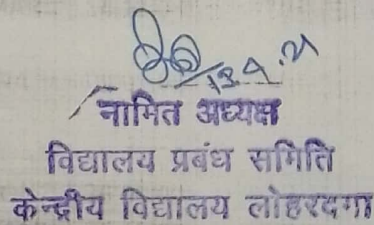 नामित अध्यक्ष
विद्यालय प्रबंध समिति
केन्द्रीय विद्यालय लोहरदगा